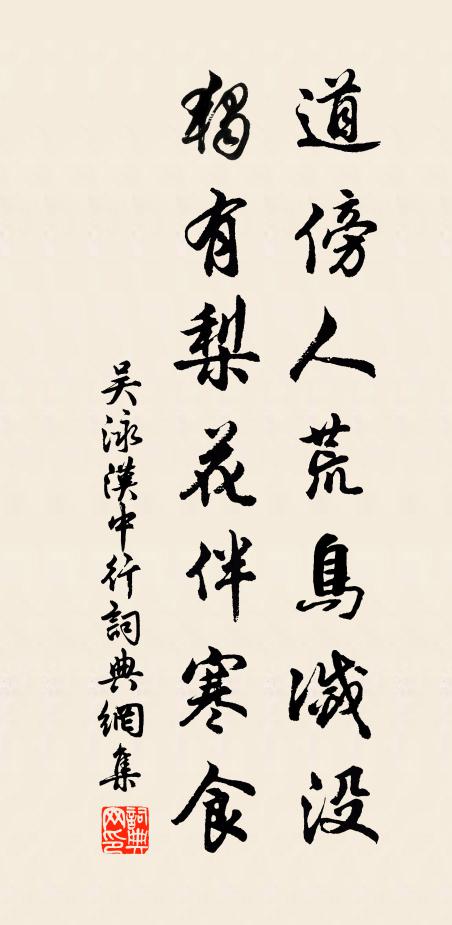 道傍人荒鳥滅没
獨有梨花伴寒食
吴泳漢中行詞典網集
詞典網印